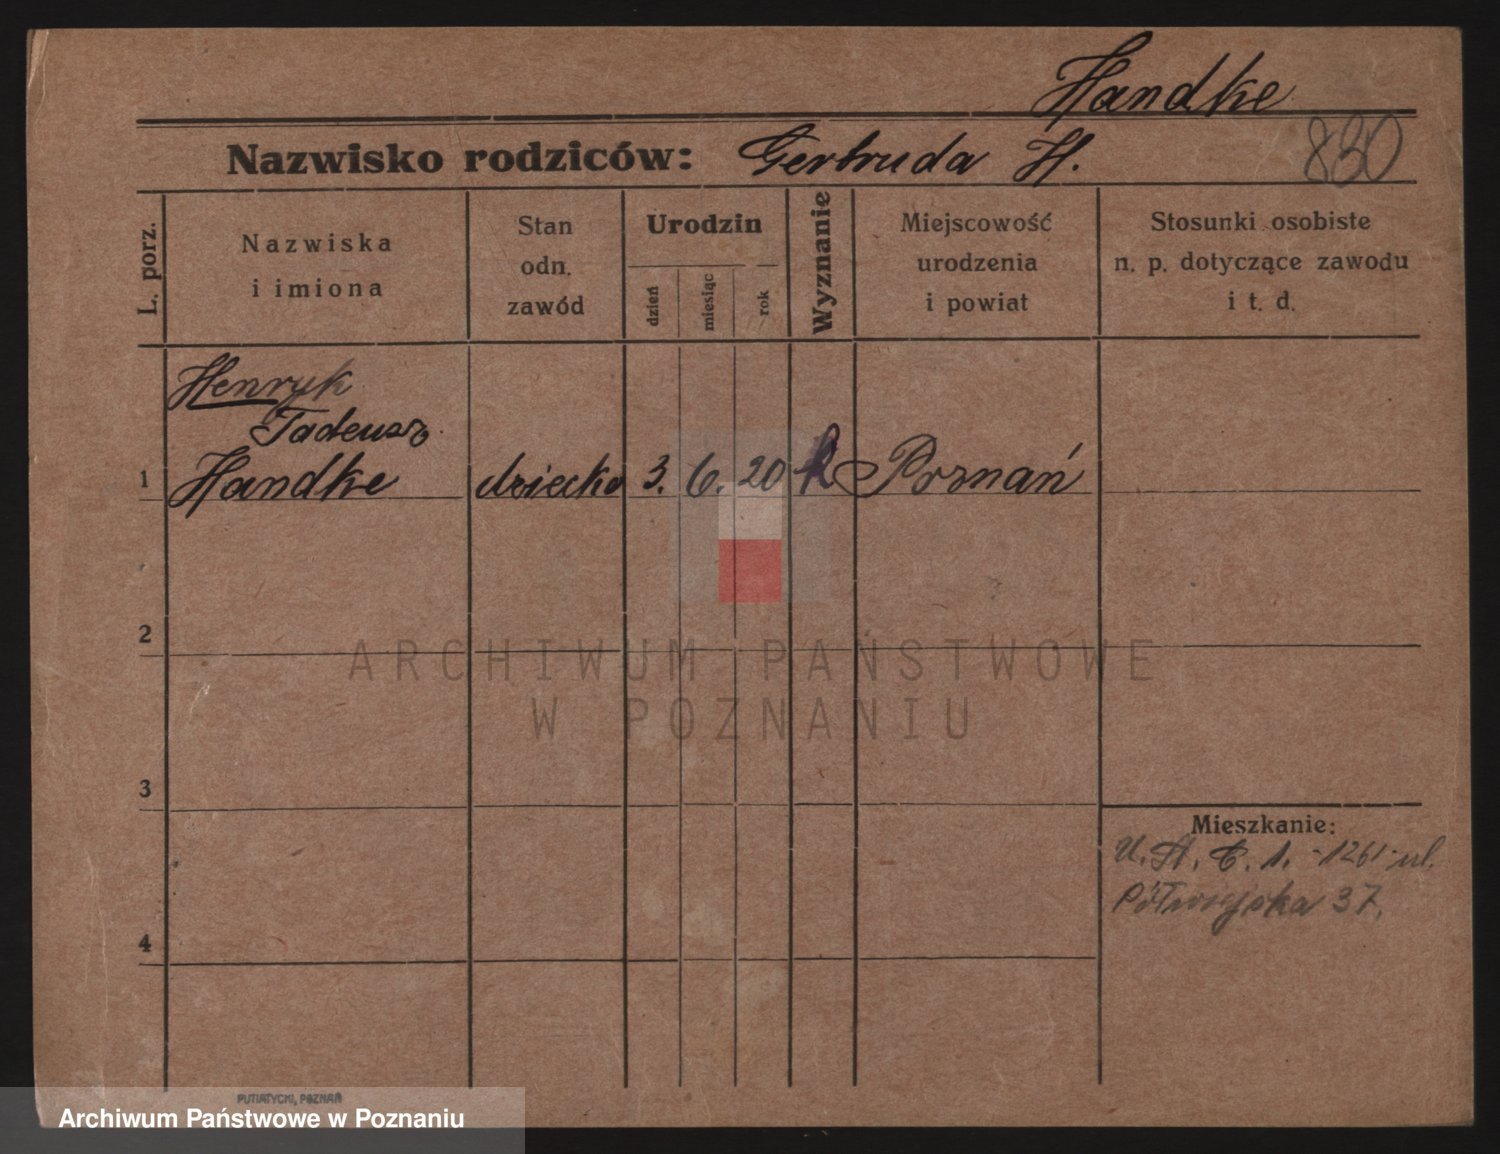 Handke
Nazwisko rodziców: Gertruda H. 830
L. porz.
Nazwiska
i imiona
Stan
odn.
zawód
Urodzin
dzień
miesiąc
rok
Wyznanie
Miejscowość
urodzenia
i powiat
Stosunki osobiste
n. p. dotyczące zawodu
i t. d.
Henryk
Tadeusz
1 Handke dziecko 3. 6. 20 k Poznań
2
ARCHIWUM PAŃSTWOWE
W POZNANIU
3
Mieszkanie:
U. A. C. 1. -1261- ul.
Półwiejska 37.
4
PUTIATYCKI, POZNAŃ
Archiwum Państwowe w Poznaniu